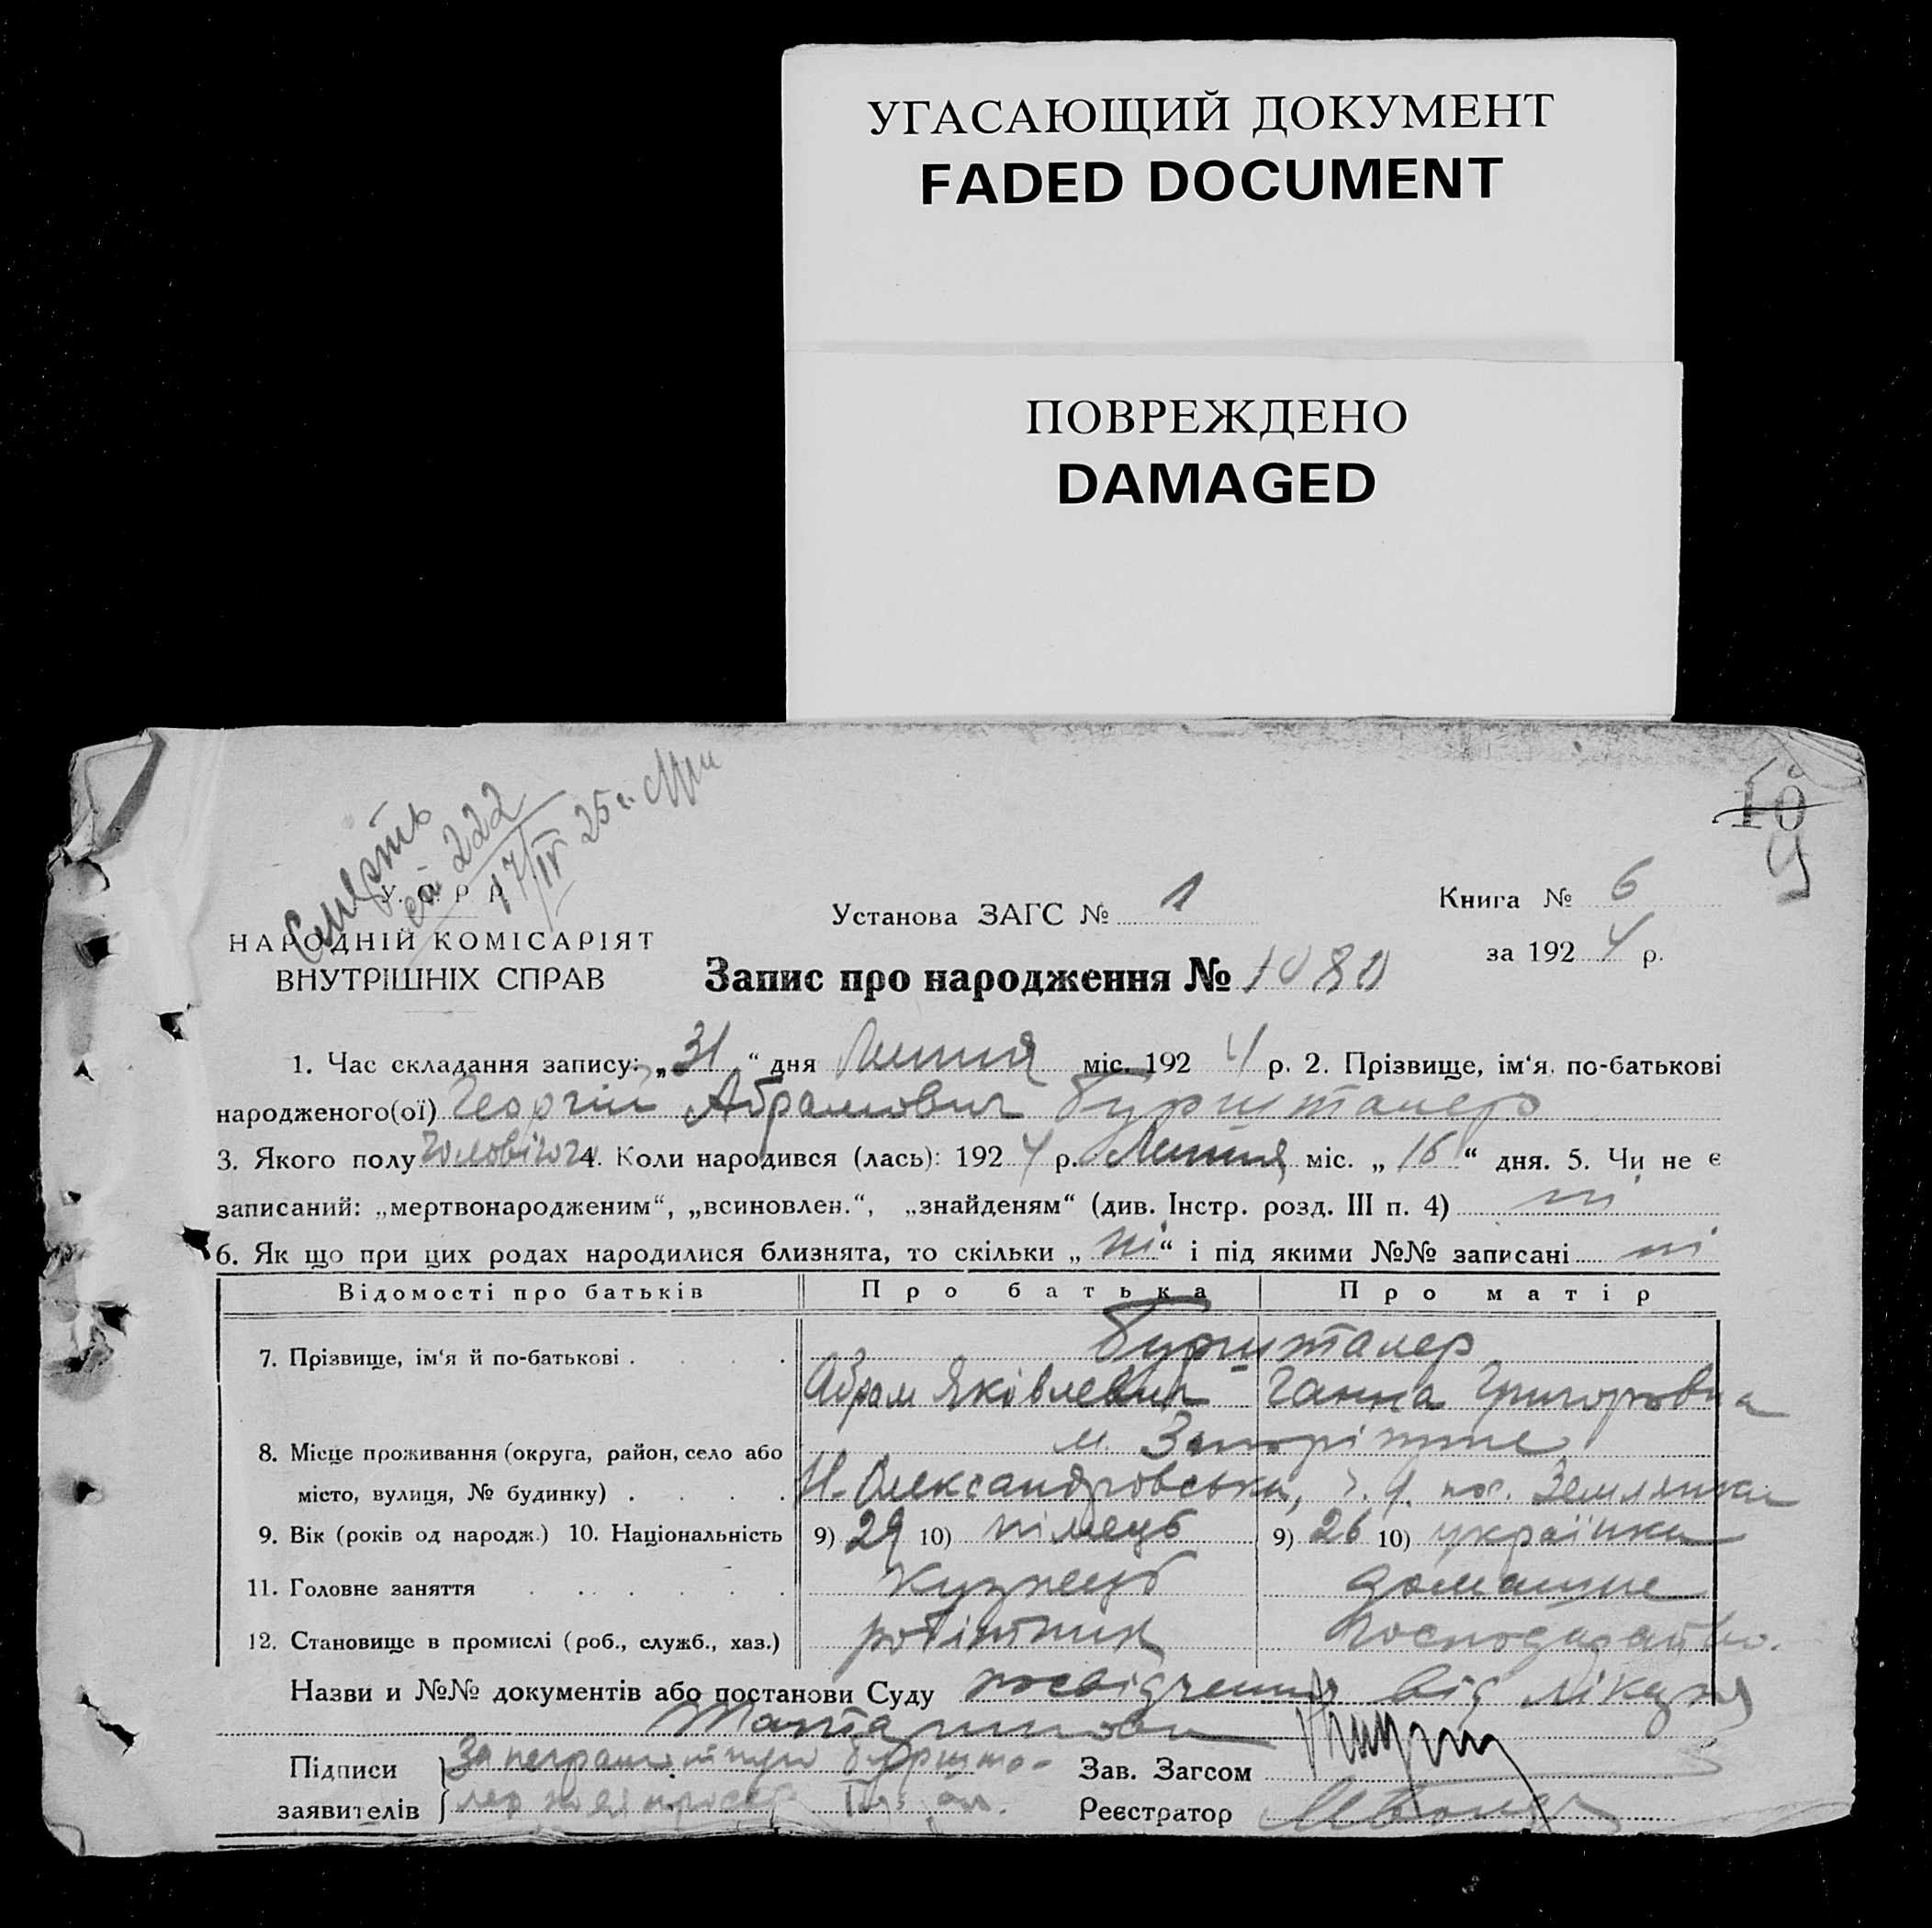 УГАСАЮЩИЙ ДОКУМЕНТ
FADED DOCUMENT
ПОВРЕЖДЕНО
DAMAGED
Смерть
222
17/IV 25 г.
10
9
У. С. Р. Р.
НАРОДНІЙ КОМІСАРІЯТ
ВНУТРІШНІХ СПРАВ
Установа ЗАГС № 1
Книга № 6
за 1924 р.
Запис про народження № 1080
1. Час складання запису: „31“ дня Липня міс. 1924 р. 2. Прізвище, ім‘я, по-батькові
народженого(ої) Георгій Абрамович Буршталер
3. Якого полу чоловічого 4. Коли народився (лась): 1924 р. Липня міс. „16“ дня. 5. Чи не є
записаний: „мертвонародженим“, „всиновлен.“, „знайденям“ (див. Інстр. розд. III п. 4) ні
6. Як що при цих родах народилися близнята, то скільки „ні“ і під якими №№ записані ні
Відомості про батьків Про батька Про матір
7. Прізвище, ім‘я й по-батькові . . . . Буршталер
Абрам Яковлевич Ганна Григоровна
8. Місце проживання (округа, район, село або м. Запоріжжє
місто, вулиця, № будинку) . . . . Н-Олександровська, пос. Землянки
9. Вік (років од народж.) 10. Національність 9) 29 10) німець 9) 26 10) українка
11. Головне заняття . . . . . . кузнець домашнє
12. Становище в промислі (роб., служб., хаз.) робітник господарство.
Назви и №№ документів або постанови Суду посвідчення від лікаря
Підписи За неграмотную Буршта-
заявителів лер по ея просьбе
Зав. Загсом
Реєстратор